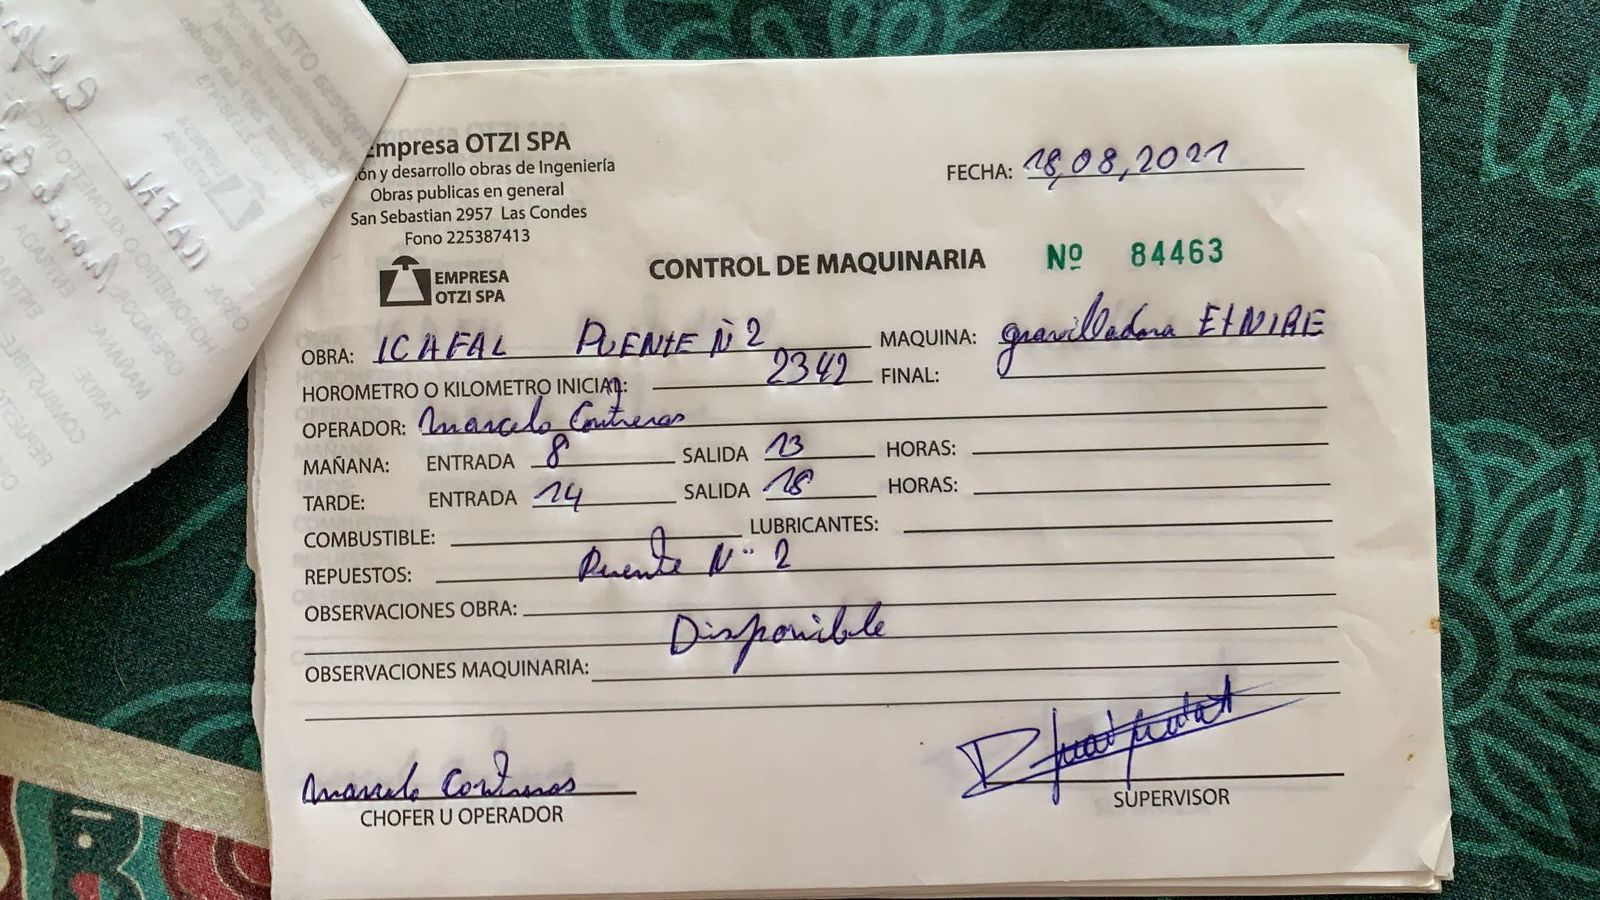 Empresa OTZI SPA
ón y desarrollo obras de Ingeniería
Obras publicas en general
San Sebastian 2957 Las Condes
Fono 225387413
EMPRESA
OTZI SPA
FECHA: 18,08,2021
CONTROL DE MAQUINARIA Nº 84463
OBRA: ICAFAL PUENTE Nº2 MAQUINA: gravilladora ETNIRE
HOROMETRO O KILOMETRO INICIAL: 2342 FINAL:
OPERADOR: Marcelo Contreras
MAÑANA: ENTRADA 8 SALIDA 13 HORAS:
TARDE: ENTRADA 14 SALIDA 18 HORAS:
COMBUSTIBLE: LUBRICANTES:
REPUESTOS: Puente Nº 2
OBSERVACIONES OBRA:
Disponible
OBSERVACIONES MAQUINARIA:
Marcelo Contreras
CHOFER U OPERADOR
SUPERVISOR